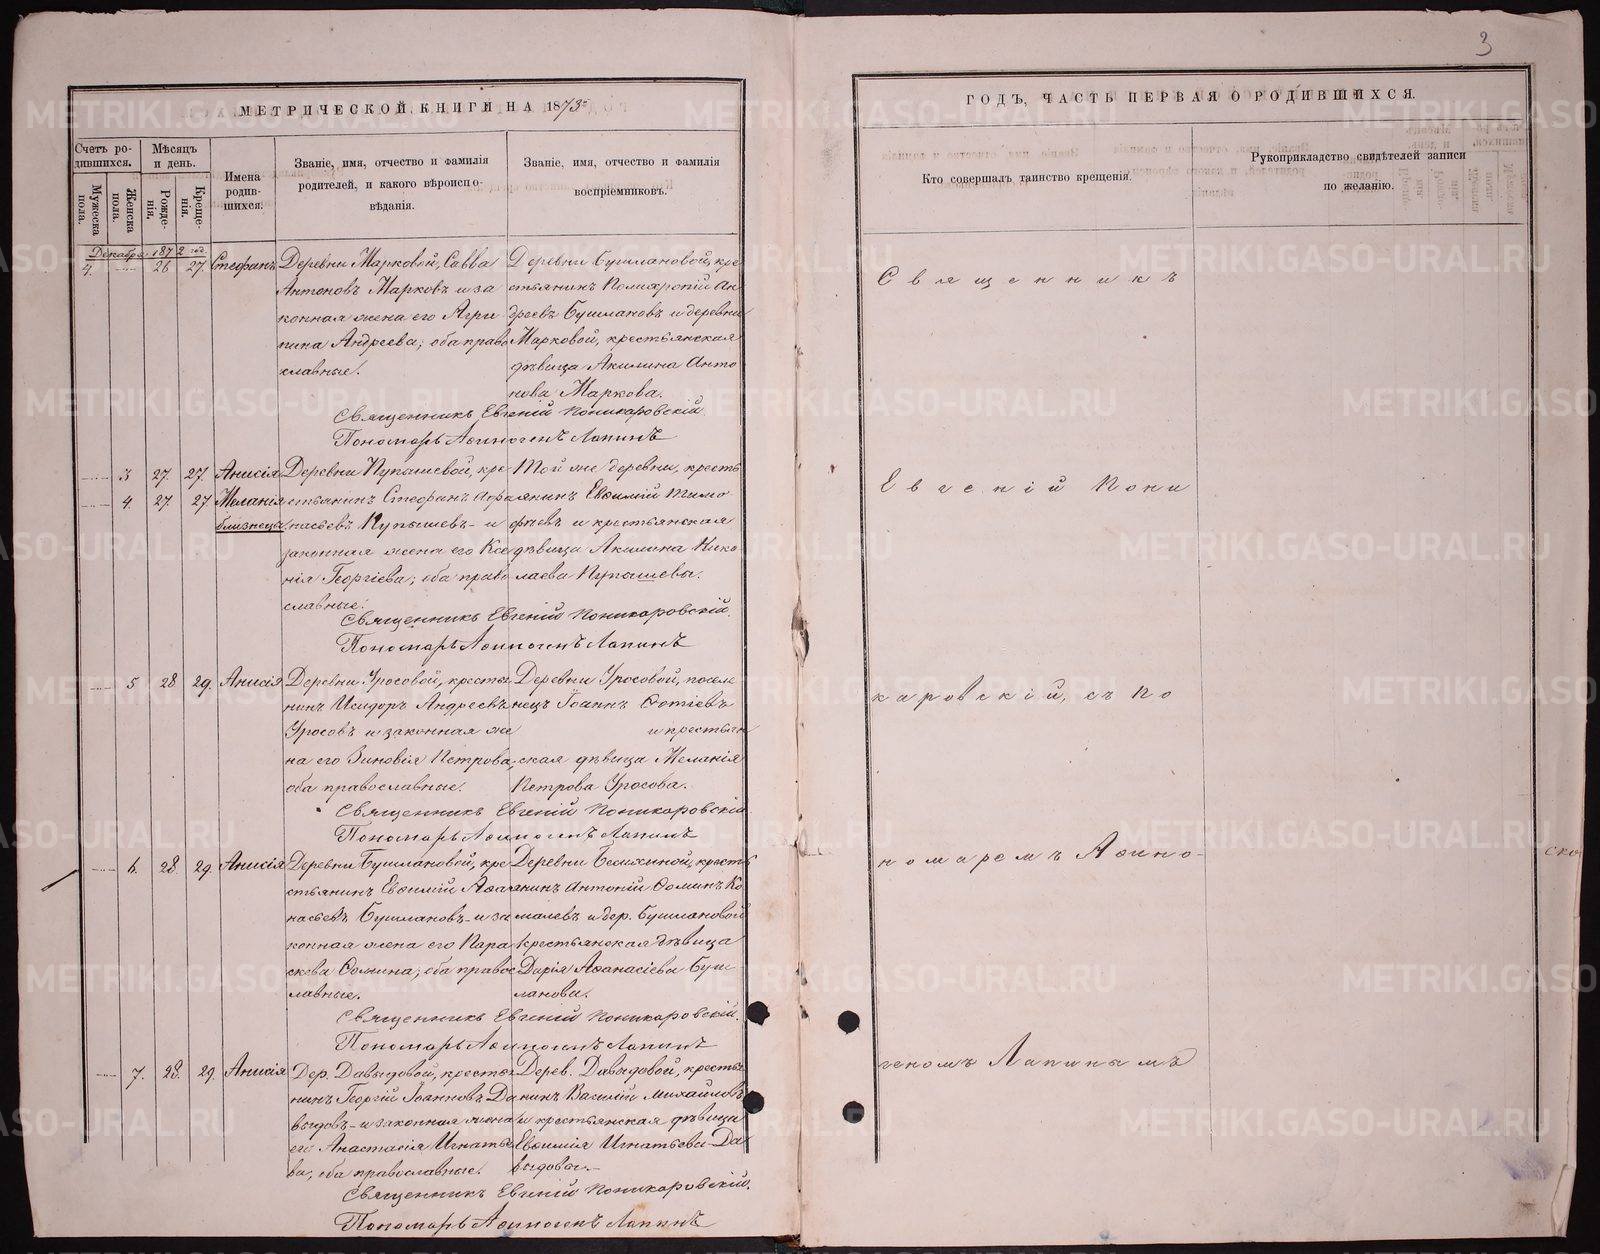 3
МЕТРИЧЕСКОЙ КНИГИ НА 1873й
ГОДЪ, ЧАСТЬ ПЕРВАЯ О РОДИВШИХСЯ.
Счетъ родившихся.
Мужеска пола.
Женска пола.
Мѣсяцъ и день.
Рожденія.
Крещенія.
Имена родившихся.
Званіе, имя, отчество и фамилія
родителей, и какого вѣроиспо-
вѣданія.
Званіе, имя, отчество и фамилія
воспріемниковъ.
Кто совершалъ таинство крещенія.
Рукоприкладство свидѣтелей записи
по желанію.
Декабрь 1872 год.
4. 26 27. Стефанъ
Деревни Марковой, Савва
Антоновъ Марковъ и за
конная жена его Агри
пина Андреева; оба право
славные.
Деревни Бушлановой, кре
стьянинъ
дреевъ Бушлановъ и деревни
Марковой, крестьянская
дѣвица Акилина Анто
нова Маркова.
Священникъ Евгеній Поникаровскій
Пономарь Аѳиногенъ Лапинъ
3 27. 27. Анисія
4. 27. 27. Меланія
близнецы
Деревни Пупышевой, кре
стьянинъ Стефанъ Афа
насьевъ Пупышевъ - и
законная жена его Ксе
нія Георгіева; оба право
славные.
Той же деревни, кресть
янинъ Евѳимій Тимо
фѣевъ и крестьянская
дѣвица Акилина Нико
лаева Пупышевы.
Священникъ Евгеній Поникаровскій.
Пономарь Аѳиногенъ Лапинъ
5 28 29. Анисія
Деревни Уросовой, крестья
нинъ Исидоръ Андреевъ
Уросовъ и законная же
на его Зиновія Петрова;
оба православные.
Деревни Уросовой, поселе
нецъ Іоаннъ Ѳотіевъ
и крестьян
ская дѣвица Меланія
Петрова Уросова.
Священникъ Евгеній Поникаровскій
Пономарь Аѳиногенъ Лапинъ
6. 28. 29. Анисія
Деревни Бушлановой, кре
стьянинъ Евѳимій Аѳа
насьевъ Бушлановъ - и за
конная жена его Пара
скева Ѳомина; оба правос
лавные.
Деревни Белихиной, кресть
янинъ Антоній Ѳоминъ Ко
малевъ и дер. Бушлановой
крестьянская дѣвица
Дарія Аѳанасіева Буш
ланова.
Священникъ Евгеній Поникаровскій.
Пономарь Аѳиногенъ Лапинъ
7. 28. 29. Анисія
Дер. Давыдовой, крестья
нинъ Георгій Іоанновъ Да
выдовъ - и законная жена
его Анастасія Игнатье
ва; оба православные.
Дерев. Давыдовой, крестья
нинъ Василій Михайловъ
и крестьянская дѣвица
Евѳимія Игнатьева Да
выдовы.
Священникъ Евгеній Поникаровскій.
Пономарь Аѳиногенъ Лапинъ
Священникъ
Евгеній Пони
каровскій, съ По
номаремъ Аѳино-
геномъ Лапинымъ
METRIKI.GASO-URAL.RU